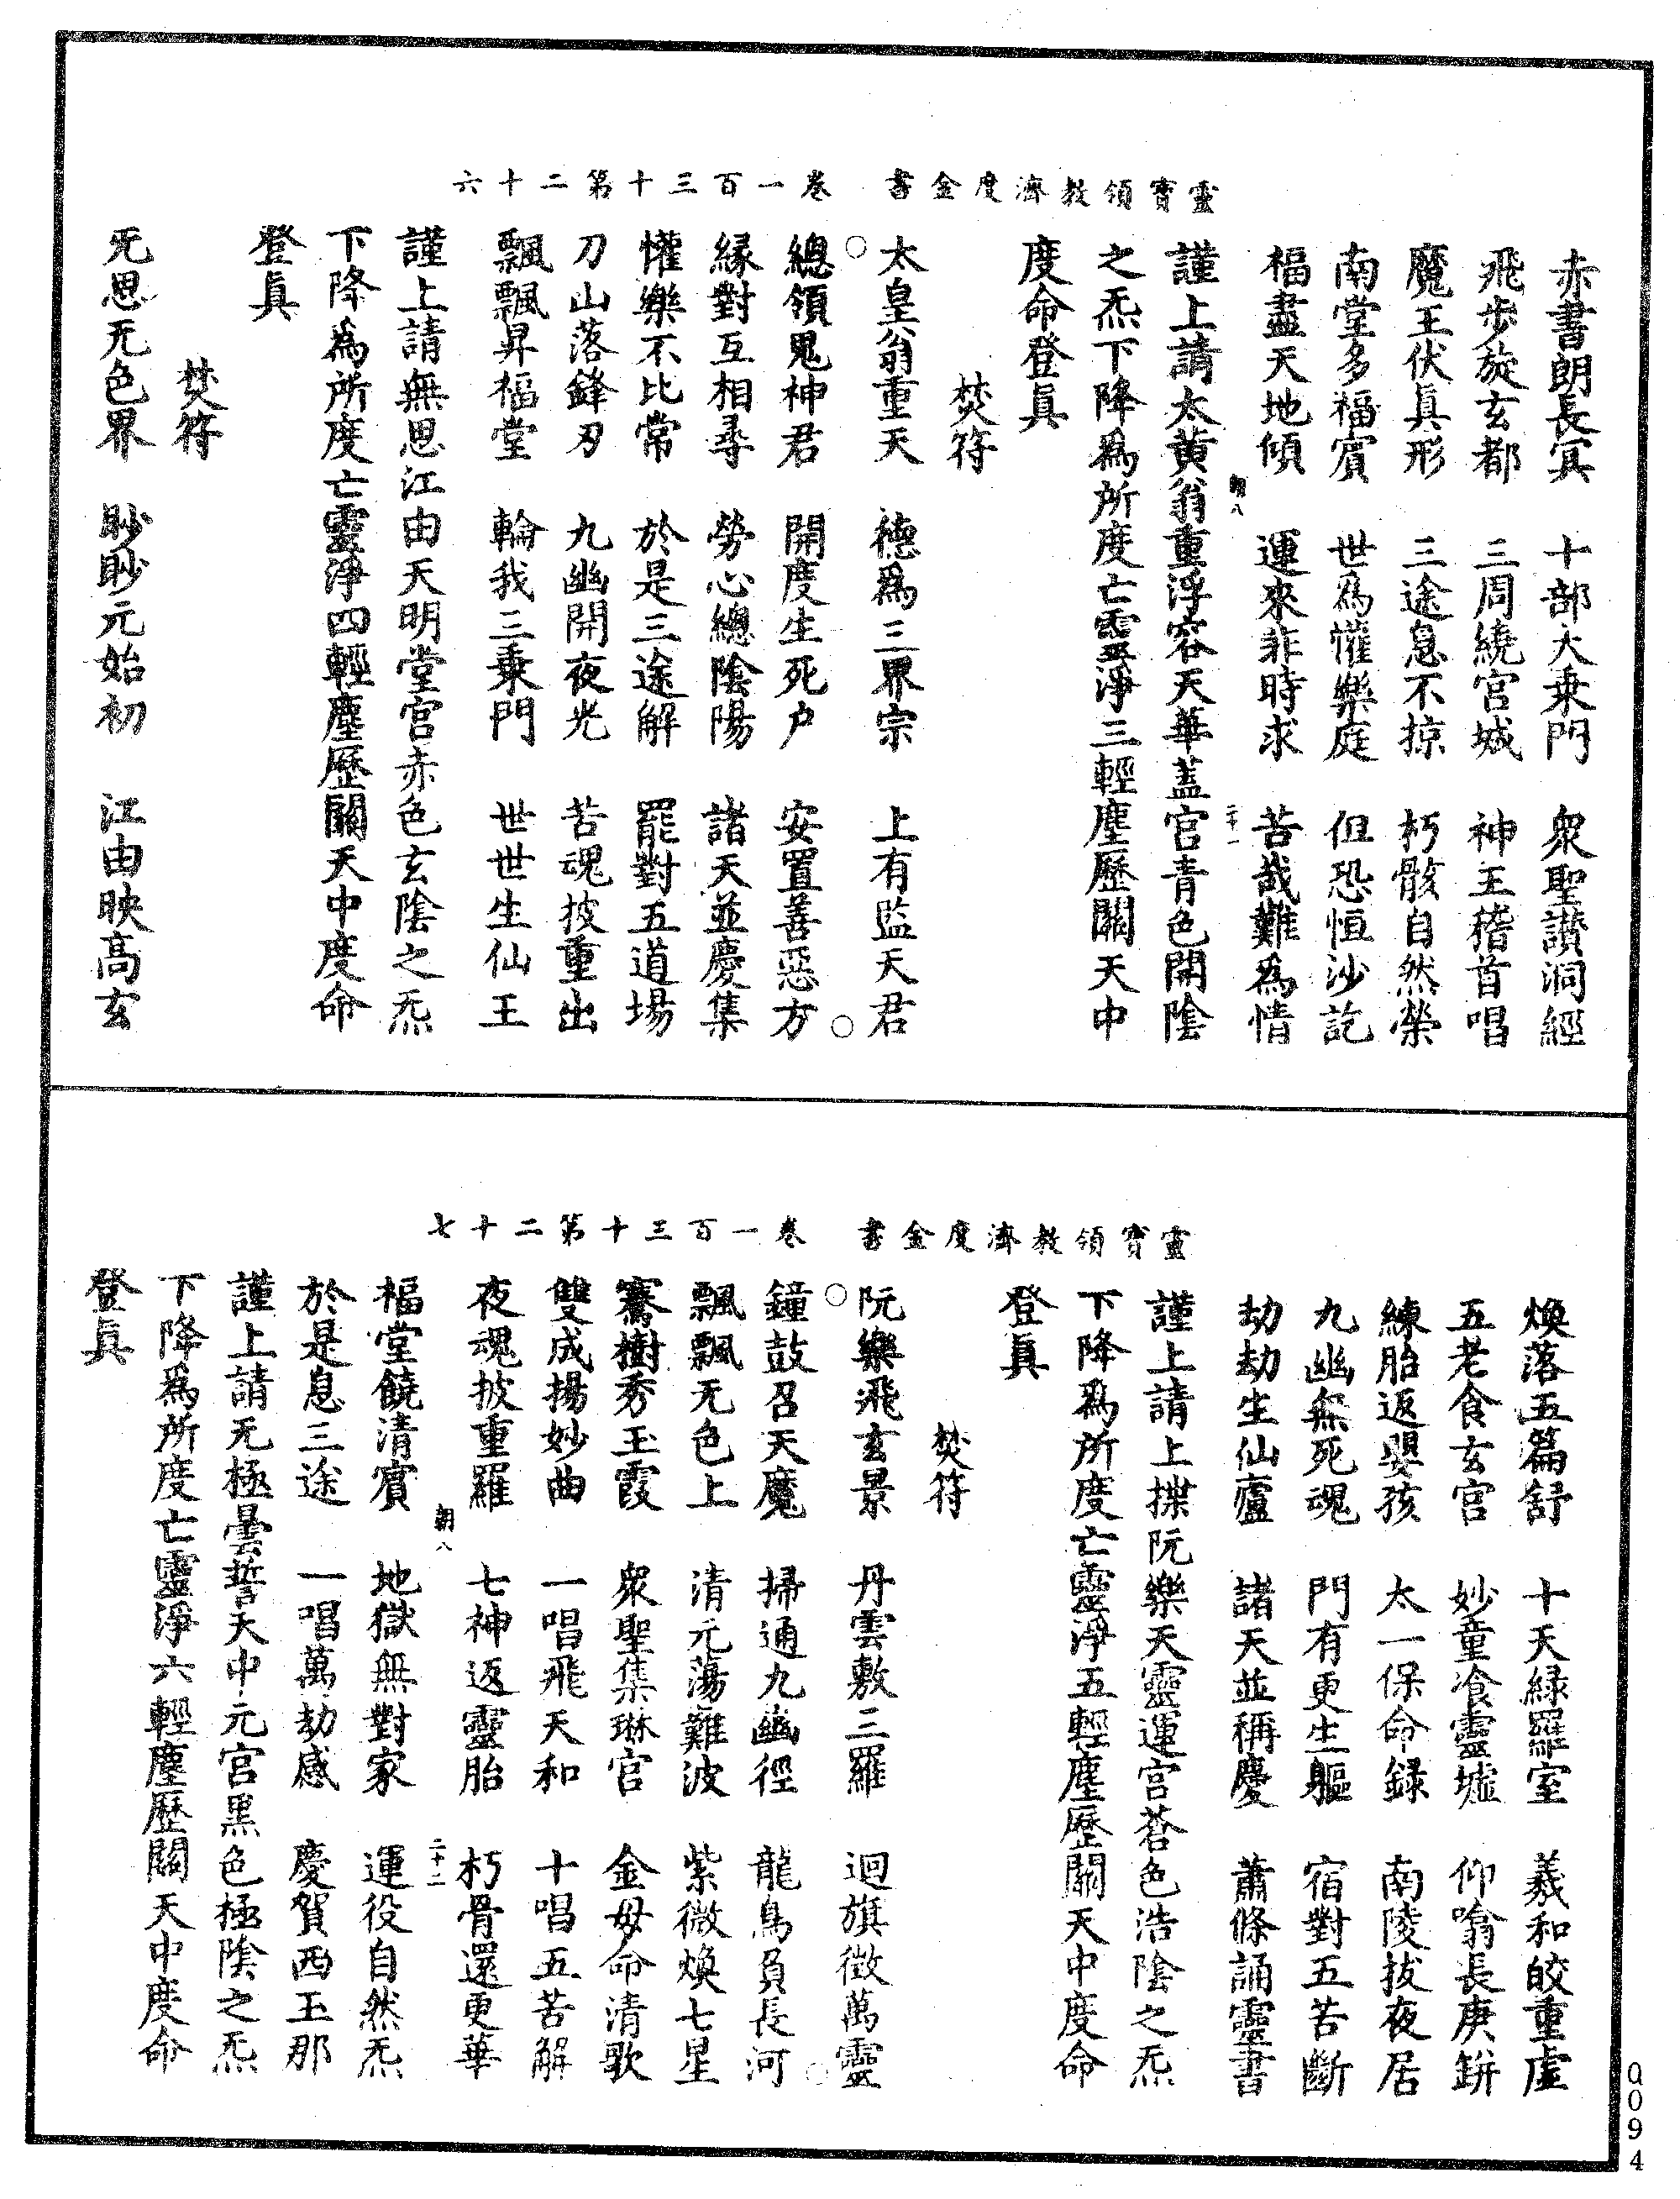 靈寶領教濟度金書　卷一百三十第二十六
赤書朗長冥　十部大乘門　眾聖讚洞經
飛步旋玄都　三周繞宮城　神王稽首唱
魔王伏眞形　三途息不掠　朽骸自然榮
南堂多福賓　世爲懽樂庭　但恐恒沙訖
福盡天地傾　運來非時求　苦哉難爲情
朝八　二十一
謹上請太黄翁重浮容天華蓋宮青色開陰
之炁下降爲所度亡靈淨三輕塵歷關天中
度命登眞
焚符
太皇翁重天　德爲三界宗　上有監天君
○總領鬼神君　開度生死户　安置善惡方○
緣對互相尋　勞心總陰陽　諸天並慶集
懽樂不比常　於是三途解　罷對五道場
刀山落鋒刃　九幽開夜光　苦魂披重出
飄飄昇福堂　輪我三乘門　世世生仙王
謹上請無思江由天明堂宮赤色玄陰之炁
下降爲所度亡靈淨四輕塵歷關天中度命
登眞
焚符
无思无色界　眇眇元始初　江由映高玄
靈寶領教濟度金書　卷一百三十第二十七
煥落五篇舒　十天緑羅室　羲和皎重虛
五老食玄宮　妙童飡靈墟　仰噏長庚鉼
練胎返嬰孩　太一保命録　南陵拔夜居
九幽無死魂　門有更生軀　宿對五苦斷
劫劫生仙廬　諸天並稱慶　蕭條誦靈書
謹上請上揲阮樂天靈運宮蒼色浩陰之炁
下降爲所度亡靈淨五輕塵歷關天中度命
登眞
焚符
阮樂飛玄景　丹雲敷三羅　迴旗徵萬靈
○鐘鼓召天魔　掃通九幽徑　龍鳥負長河○
飄飄无色上　清元蕩難波　紫微煥七星
騫樹秀玉霞　眾聖集琳宮　金母命清歌
雙成揚妙曲　一唱飛天和　十唱五苦解
夜魂披重羅　七神返靈胎　朽骨還更華
朝八　二十二
福堂饒清賓　地獄無對家　運役自然炁
於是息三途　一唱萬劫感　慶賀西王那
謹上請无極曇誓天中元宮黑色極陰之炁
下降爲所度亡靈淨六輕塵歷關天中度命
登眞
Q094